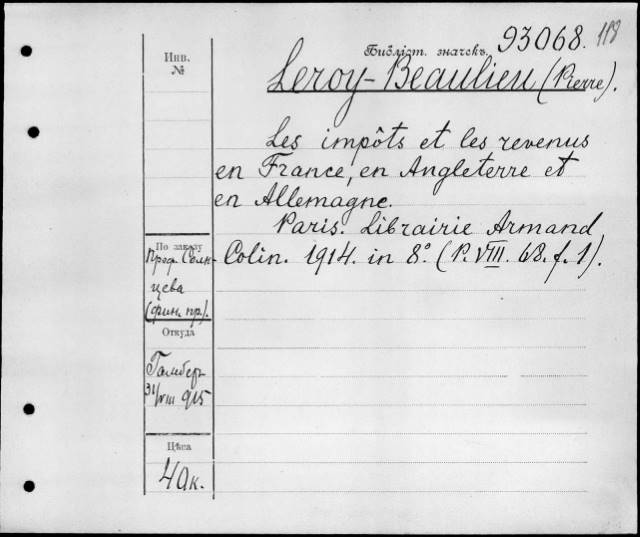 93068. 118
Библіот. значекъ.
Инв.
№
Leroy-Beaulieu (Pierre).
Les impôts et les revenus
en France, en Angleterre et
en Allemagne.
Paris. Librairie Armand
Colin. 1914. in 8° (P. VIII. 68. f. 1).
По заказу
Проф. Солн-
цева
(фин. пр).
Откуда
31/VIII 915
Цѣна